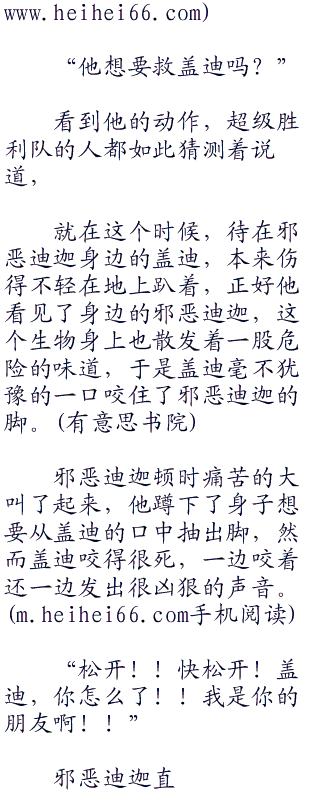 www.heihei66.com)
“他想要救盖迪吗？”
看到他的动作，超级胜
利队的人都如此猜测着说
道，
就在这个时候，待在邪
恶迪迦身边的盖迪，本来伤
得不轻在地上趴着，正好他
看见了身边的邪恶迪迦，这
个生物身上也散发着一股危
险的味道，于是盖迪毫不犹
豫的一口咬住了邪恶迪迦的
脚。(有意思书院)
邪恶迪迦顿时痛苦的大
叫了起来，他蹲下了身子想
要从盖迪的口中抽出脚，然
而盖迪咬得很死，一边咬着
还一边发出很凶狠的声音。
(m.heihei66.com手机阅读)
“松开！！快松开！盖
迪，你怎么了！！我是你的
朋友啊！！”
邪恶迪迦直